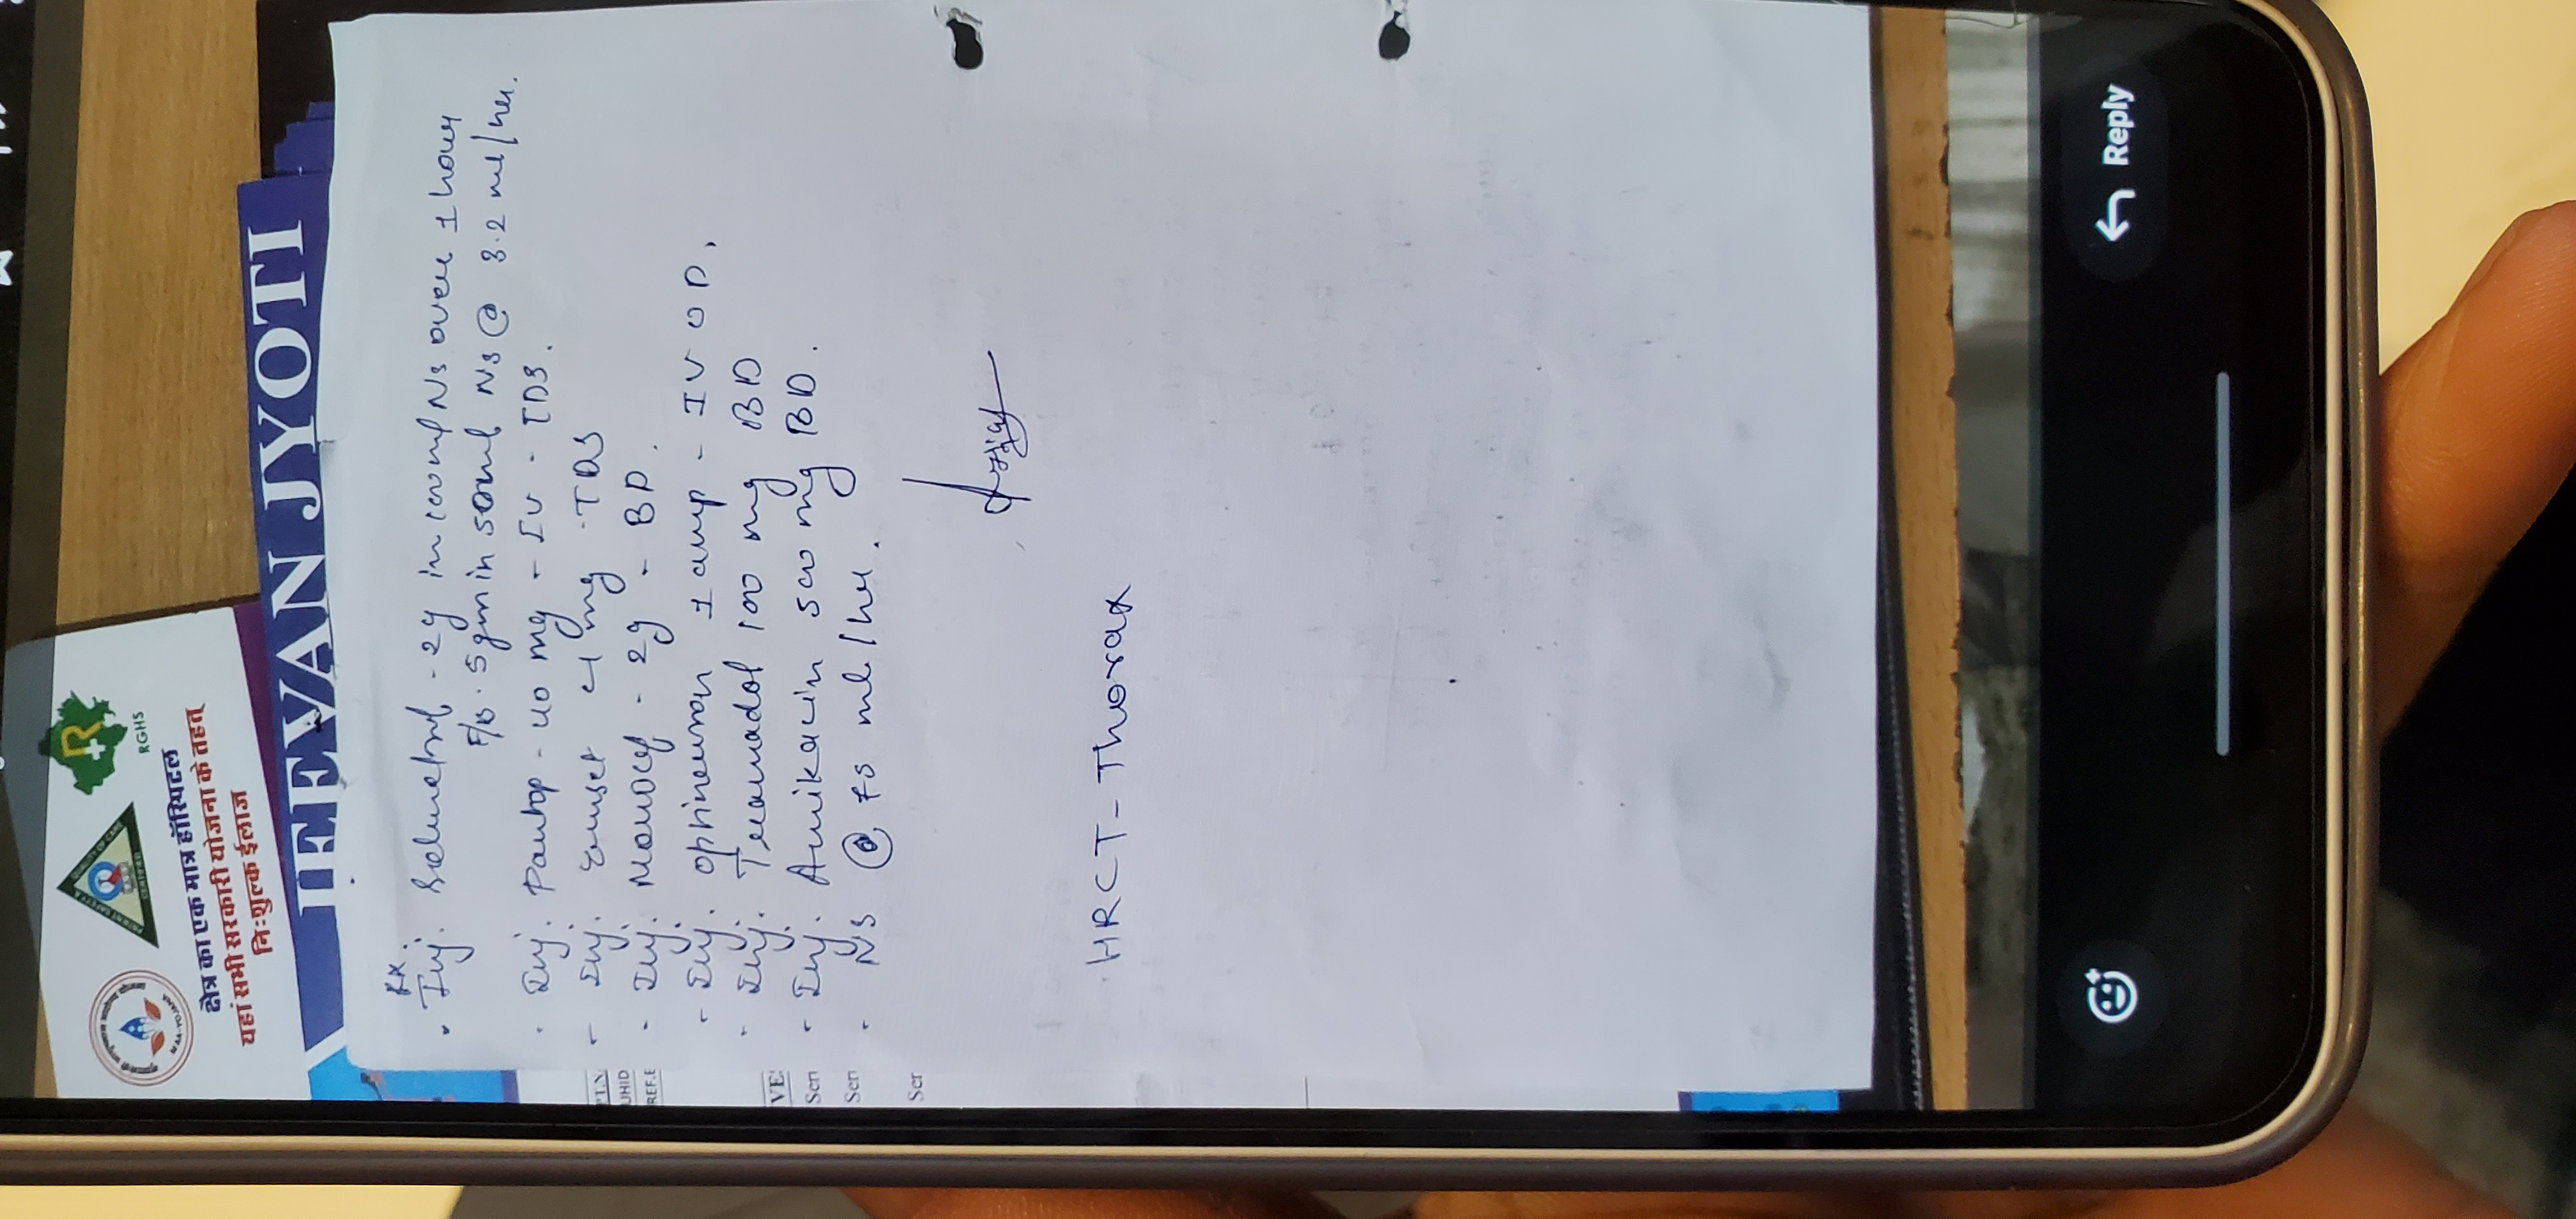 RGHS
क्षेत्र का एक मात्र हॉस्पिटल
यहां सभी सरकारी योजना के तहत
निःशुल्क ईलाज
JEEVAN JYOTI
Rx
Inj. Solumetrol - 2g in 100ml NS over 1 hour
F/b. 5gm in 50ml NS @ 3.2 ml/hr.
Inj. Pantop - 40 mg - IV - TDS.
Inj. Emset 4 mg - TDS
Inj. Monocef - 2g - BD.
Inj. Optineuron 1 amp - IV OD.
Inj. Tramadol 100 mg BD
Inj. Amikacin 500 mg BD.
NS @ 75 ml/hr.
HRCT - Thorax
UHID
REF.B
VE
Sen
Sen
Ser
Reply